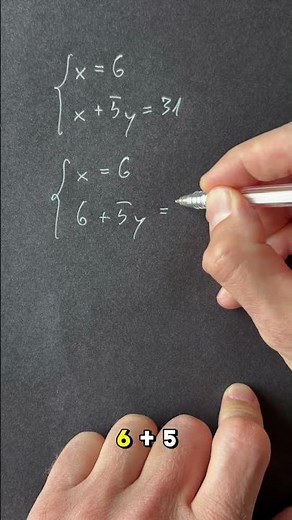 x = 6
x + 5y = 31
x = 6
6 + 5y =
6 + 5